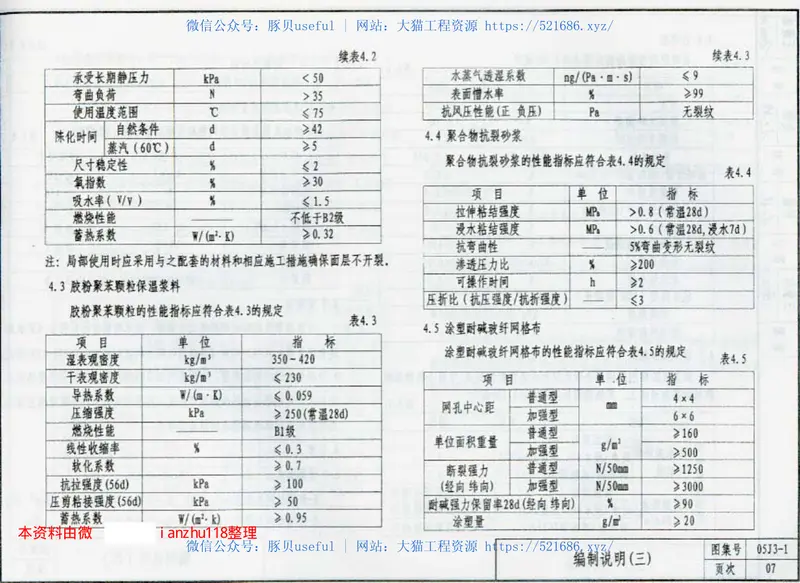 微信公众号：豚贝useful | 网站：大猫工程资源 https://521686.xyz/
续表4.2
承受长期静压力 kPa <50
弯曲负荷 N >35
使用温度范围 ℃ ≤75
陈化时间 自然条件 d ≥42
蒸汽(60℃) d ≥5
尺寸稳定性 % ≤2
氧指数 % ≥30
吸水率(V/v) % ≤1.5
燃烧性能 —— 不低于B2级
蓄热系数 W/(m²·K) ≥0.32
注: 局部使用时应采用与之配套的材料和相应施工措施确保面层不开裂.
4.3 胶粉聚苯颗粒保温浆料
胶粉聚苯颗粒的性能指标应符合表4.3的规定
表4.3
项 目 单 位 指 标
湿表观密度 kg/m³ 350~420
干表观密度 kg/m³ ≤230
导热系数 W/(m·K) ≤0.059
压缩强度 kPa ≥250(常温28d)
燃烧性能 —— B1级
线性收缩率 % ≤0.3
软化系数 ≥0.7
抗拉强度(56d) kPa ≥100
压剪粘接强度(56d) kPa ≥50
蓄热系数 W/(m²·k) ≥0.95
续表4.3
水蒸气透湿系数 ng/(Pa·m·s) ≤9
表面憎水率 % ≥99
抗风压性能(正 负压) Pa 无裂纹
4.4 聚合物抗裂砂浆
聚合物抗裂砂浆的性能指标应符合表4.4的规定
表4.4
项 目 单 位 指 标
拉伸粘结强度 MPa >0.8(常温28d)
浸水粘结强度 MPa >0.6(常温28d,浸水7d)
抗弯曲性 —— 5%弯曲变形无裂纹
渗透压力比 % ≥200
可操作时间 h ≥2
压折比(抗压强度/抗折强度) ≤3
4.5 涂塑耐碱玻纤网格布
涂塑耐碱玻纤网格布的性能指标应符合表4.5的规定
表4.5
项 目 单 位 指 标
网孔中心距 普通型 mm 4×4
加强型 6×6
单位面积重量 普通型 g/m² ≥160
加强型 ≥500
断裂强力 普通型 N/50mm ≥1250
(经向 纬向) 加强型 N/50mm ≥3000
耐碱强力保留率28d(经向 纬向) % ≥90
涂塑量 g/m² ≥20
本资料由微 ianzhu118整理
微信公众号：豚贝useful | 网站：大猫工程资源 https://521686.xyz/
编制说明(三) 图集号 05J3-1
页次 07